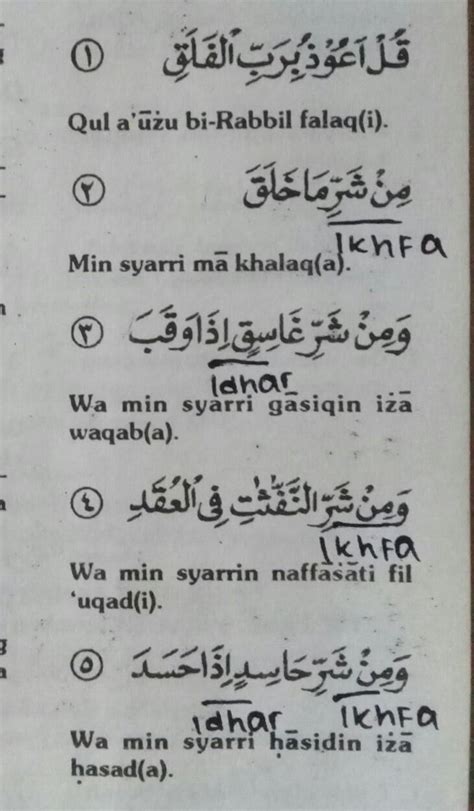 قُلْ اَعُوْذُ بِرَبِّ الْفَلَقِ ١
Qul a'ūżu bi-Rabbil falaq(i).
مِنْ شَرِّ مَا خَلَقَ ٢
Ikhfa
Min syarri mā khalaq(a).
وَمِنْ شَرِّ غَاسِقٍ اِذَا وَقَبَ ٣
Idhar
Wa min syarri gāsiqin iżā
waqab(a).
وَمِنْ شَرِّ النَّفّٰثٰتِ فِى الْعُقَدِ ٤
Ikhfa
Wa min syarrin naffāṡāti fil
'uqad(i).
وَمِنْ شَرِّ حَاسِدٍ اِذَا حَسَدَ ٥
Idhar Ikhfa
Wa min syarri ḥāsidin iżā
ḥasad(a).